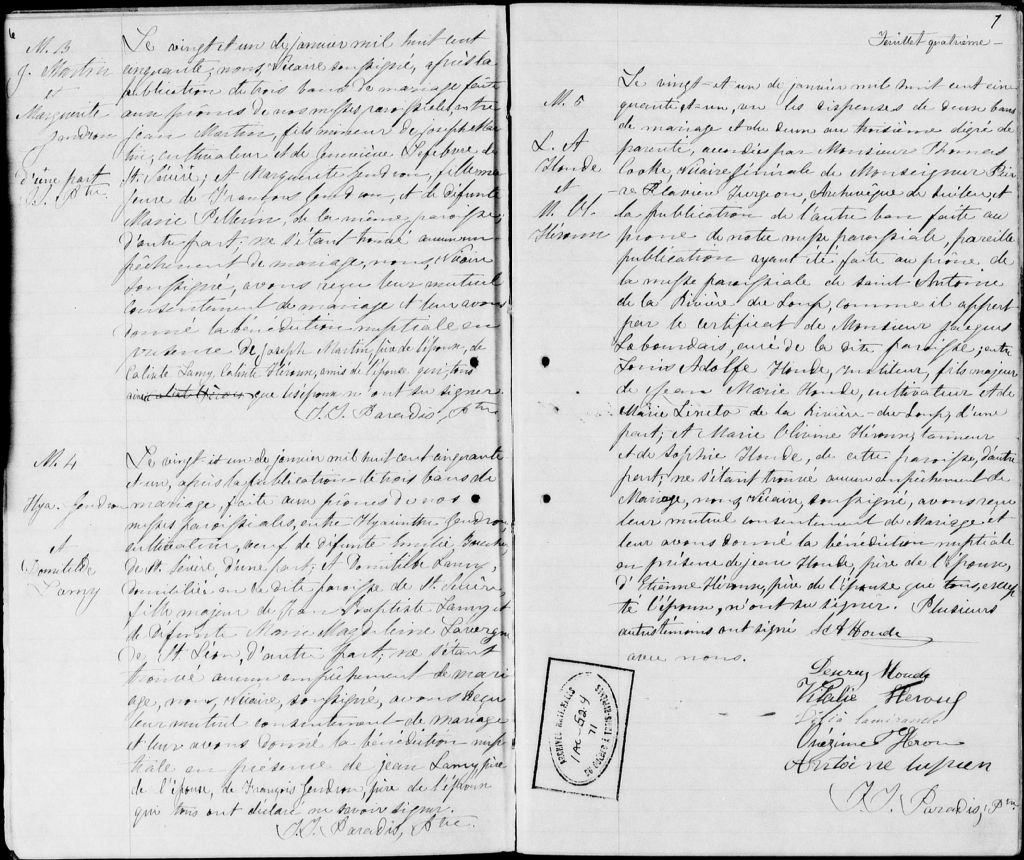 6
M. 3
J. Martin
et
Marguerite
Gendron
d'une part
Ptre.
Le vingt et un de janvier mil huit cent
cinquante, nous, Vicaire soussigné, après la
publication de trois bans de mariage faite
aux prônes de nos messes paroissiales, entre
Jean Martin, fils mineur de Joseph Mar
tin, cultivateur et de Geneviève Lefebvre de
St. Sévère; et Marguerite Gendron, fille mi
neure de François Gendron, et de défunte
Marie Pellerin, de la même paroisse,
d'autre part; ne s'étant trouvé aucun em
pêchement de mariage, nous, Vicaire
soussigné, avons reçu leur mutuel
consentement de mariage et leur avons
donné la bénédiction nuptiale en
présence de Joseph Martin, père de l'époux, de
Calixte Lamy, Calixte Héroux, amis de l'épouse qui, tous
que l'époux n'ont su signer.
J. I. Paradis, Ptre
M. 4
Hya. Gendron
et
Domitilde
Lamy
Le vingt et un de janvier mil huit cent cinquante
et un, après la publication de trois bans de
mariage, faite aux prônes de nos
messes paroissiales, entre Hyacinthe Gendron
cultivateur, veuf de défunte Emilie
de St. Sévère, d'une part; et Domitilde Lamy,
domiciliée en la dite paroisse de St. Sévère
fille majeur de Jean Baptiste Lamy et
de défunte Marie Magdeleine Lavergne
de St. Léon, d'autre part; ne s'étant
trouvé aucun empêchement de mari
age, nous, Vicaire, soussigné, avons reçu
leur mutuel consentement de mariage
et leur avons donné la bénédiction nup
tiale en présence de Jean Lamy, père
de l'épouse, de François Gendron, père de l'époux
qui tous ont déclaré ne savoir signer.
J. I. Paradis, Ptre.
7
Feuillet quatrième
M. 5
L. A
Houde
et
M. Ol.
Héroux
Le vingt-et un de janvier mil huit cent cin
quante-et-un, vu les dispenses de deux bans
de mariage et du deux au troisième dégré de
parenté, accordées par Monsieur Thomas
Cooke, Vicaire Générale de Monseigneur Pier
re Flavien Turgeon, Archevêque de Québec, et
la publication de l'autre ban faite au
prone de notre messe paroissiale, pareille
publication ayant été faite au prône de
la messe paroissiale de saint Antoine
de la Rivière du Loup, comme il appert
par le certificat de Monsieur Jacques
Lebourdais, curé de la dite paroisse; entre
Louis Adolfe Houde, fils majeur
de Jean Marie Houde, cultivateur et de
Marie de la Rivière-du Loup, d'une
part; et Marie Olivine Héroux; tanneur
et de Sophie Houde, de cette paroisse, d'autre
part; ne s'étant trouvé aucun empêchement de
Mariage, nous, Vicaire, soussigné, avons reçu
leur mutuel consentement de Mariage et
leur avons donné la bénédiction nuptiale
en présence de Jean Houde, père de l'époux,
d'Etienne Héroux, père de l'épouse que tous, excep
té l'époux, n'ont su signer. Plusieurs
autres témoins ont signé L A Houde
avec nous.
Houde
Vitalie Heroux
Onézime Heroux
Antoine
J. I. Paradis, Ptre.
ARCHIVES NATIONALES
1 AC-52.4
71
DU QUÉBEC À TROIS-RIVIÈRES